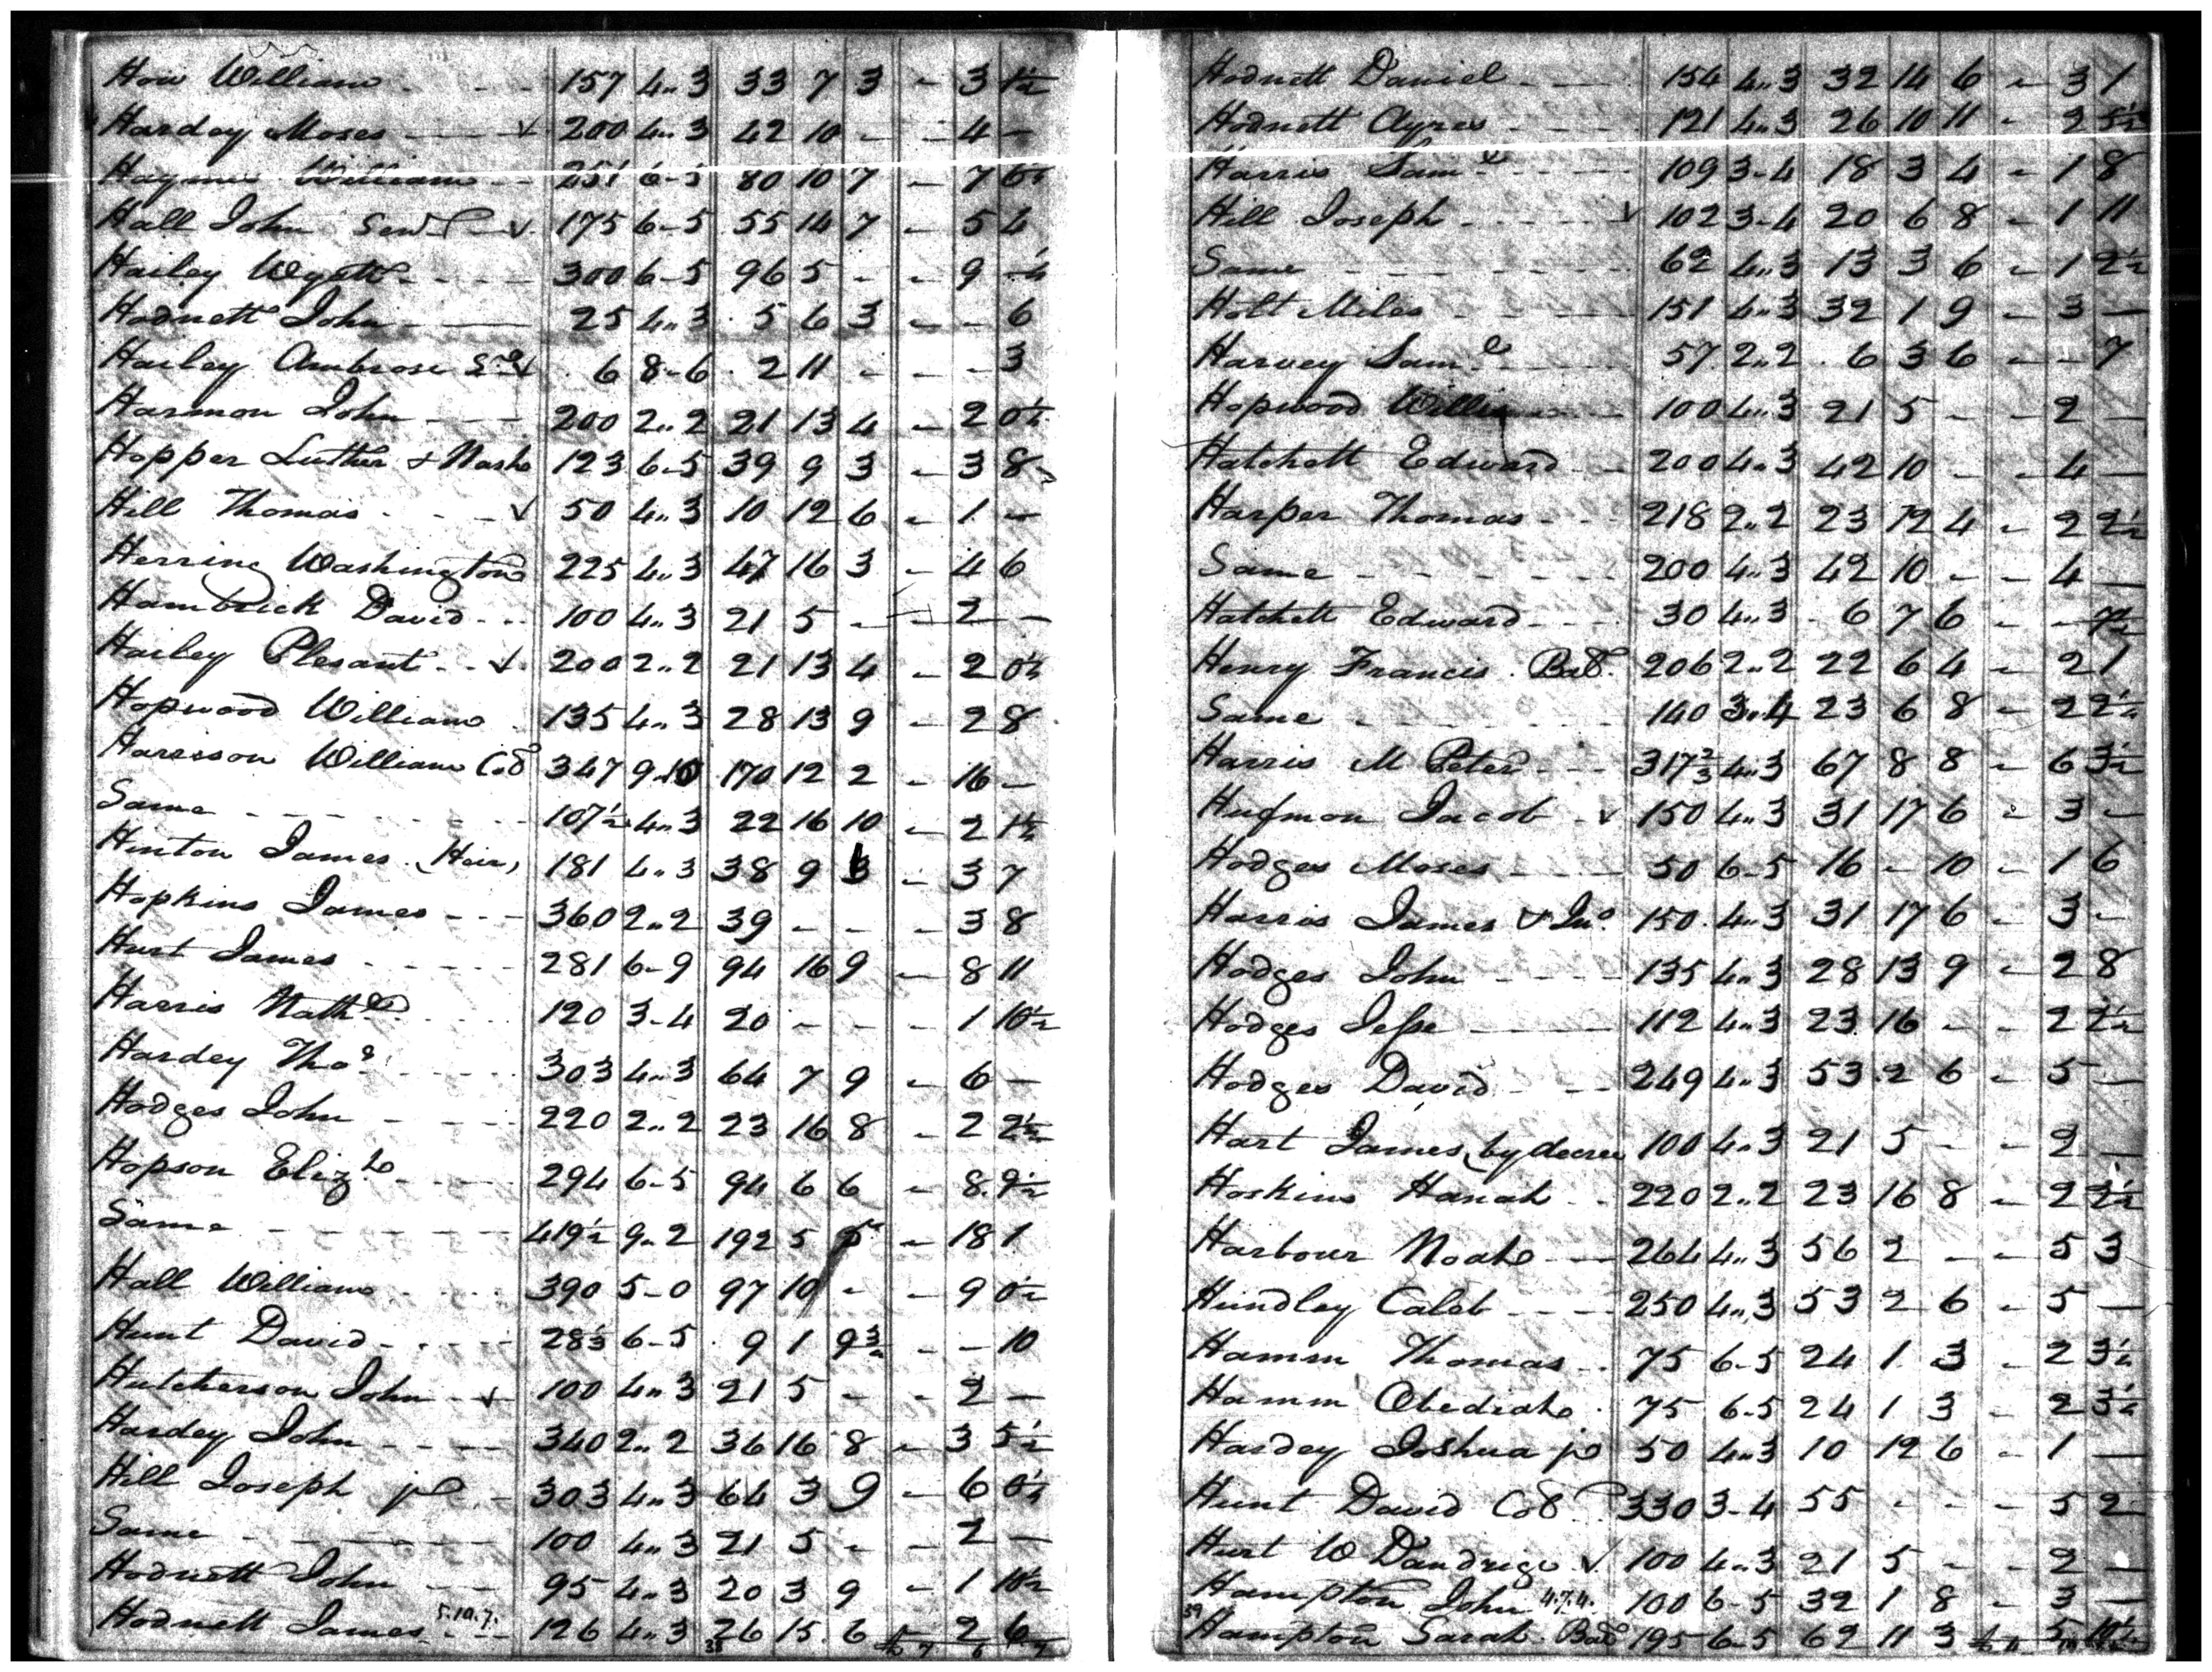 How William - - - 157 4..3 33 7 3 - 3 1½
Hardey Moses — √ 200 4..3 42 10 - - 4 -
Haymes William - - 251 6-5 80 10 7 - 7 6½
Hall John Senr √ 175 6-5 55 14 7 - 5 4
Hailey Wyatt - - - 300 6-5 96 5 - - 9
Hodnett John — 25 4..3 5 6 3 - - 6
Hailey Ambrose Sr √ 6 8-6 2 11 - - - 3
Harmon John - - - 200 2..2 21 13 4 - 2 0½
Hopper Luther & Nash 123 6-5 39 9 3 - 3 8
Hill Thomas - - - √ 50 4..3 10 12 6 - 1 -
Herring Washington 225 4..3 47 16 3 - 4 6
Hambrick David - - 100 4..3 21 5 - - 2 -
Hailey Plesant - - √ 200 2..2 21 13 4 - 2 0½
Hopwood William 135 4..3 28 13 9 - 2 8
Harrison William Col 347 9-10 170 12 2 - 16 -
Same - - - 107½ 4..3 22 16 10 - 2 1½
Hinton James (Heir) 181 4..3 38 9 3 - 3 7
Hopkins James - - - 360 2..2 39 - - - 3 8
Hurt James - - - 281 6-9 94 16 9 - 8 11
Harris Nathl - - - 120 3-4 20 - - - 1 10½
Hardey Thos - - - 303 4..3 64 7 9 - 6 -
Hodges John - - - 220 2..2 23 16 8 - 2 2½
Hopson Elizh - - - 294 6-5 94 6 6 - 8 9½
Same - - - 419½ 9..2 192 5 5 - 18 1
Hall William - - - 390 5-0 97 10 - - 9 0½
Hunt David - - - 28⅓ 6-5 9 1 9¾ - - 10
Hutcherson John - √ 100 4..3 21 5 - - 2 -
Hardey John - - - 340 2..2 36 16 8 - 3 5½
Hill Joseph jr - - 303 4..3 64 3 9 - 6 0½
Same - - - 100 4..3 21 5 - - 2 -
Hodnett John - - - 95 4..3 20 3 9 - 1 10½
Hodnett James 5.10.7. 126 4..3 26 15 6 2 6
38 7 6 7
Hodnett Daniel - - - 154 4..3 32 14 6 - 3 1
Hodnett Ayres - - - 121 4..3 26 10 11 - 2 5½
Harris Saml - - - 109 3-4 18 3 4 - 1 8
Hill Joseph - - - √ 102 3-4 20 6 8 - 1 11
Same - - - 62 4..3 13 3 6 - 1 2½
Holt Miles - - - 151 4..3 32 1 9 - 3 -
Harvey Saml - - - 57 2..2 6 3 6 - - 7
Hopwood William - - 100 4..3 21 5 - - 2 -
Hatchett Edward - - 200 4..3 42 10 - - 4 -
Harper Thomas - - - 218 2..2 23 12 4 - 2 2½
Same - - - 200 4..3 42 10 - - 4 -
Hatchett Edward - - - 30 4..3 6 7 6 - - 7½
Henry Francis Bal. 206 2..2 22 6 4 - 2 1
Same - - - 140 3..4 23 6 8 - 2 2½
Harris M Peter - - - 317⅔ 4..3 67 8 8 - 6 3½
Hufmon Jacob - √ 150 4..3 31 17 6 - 3 -
Hodges Moses - - - 50 6-5 16 - 10 - 1 6
Harris James & Jno. 150 4..3 31 17 6 - 3 -
Hodges John - - - 135 4..3 28 13 9 - 2 8
Hodges Jesse — 112 4..3 23 16 - - 2 2½
Hodges David - - - 249 4..3 53 2 6 - 5 -
Hart James, by decree 100 4..3 21 5 - - 2 -
Hoskins Hanah - - 220 2..2 23 16 8 - 2 2½
Harbour Noah — 264 4..3 56 2 - - 5 3
Hundley Caleb - - - 250 4..3 53 2 6 - 5 -
Hamm Thomas - - 75 6-5 24 1 3 - 2 3½
Hamm Obediah - 75 6-5 24 1 3 - 2 3½
Hardey Joshua jr 50 4..3 10 12 6 - 1 -
Hunt David Col 330 3-4 55 - - - 5 2
Hurt W Dandrige √ 100 4..3 21 5 - - 2 -
Hampton John 4.7.4. 100 6-5 32 1 8 - 3 -
39 Hampton Sarah Bal 195 6-5 62 11 3 5 10½